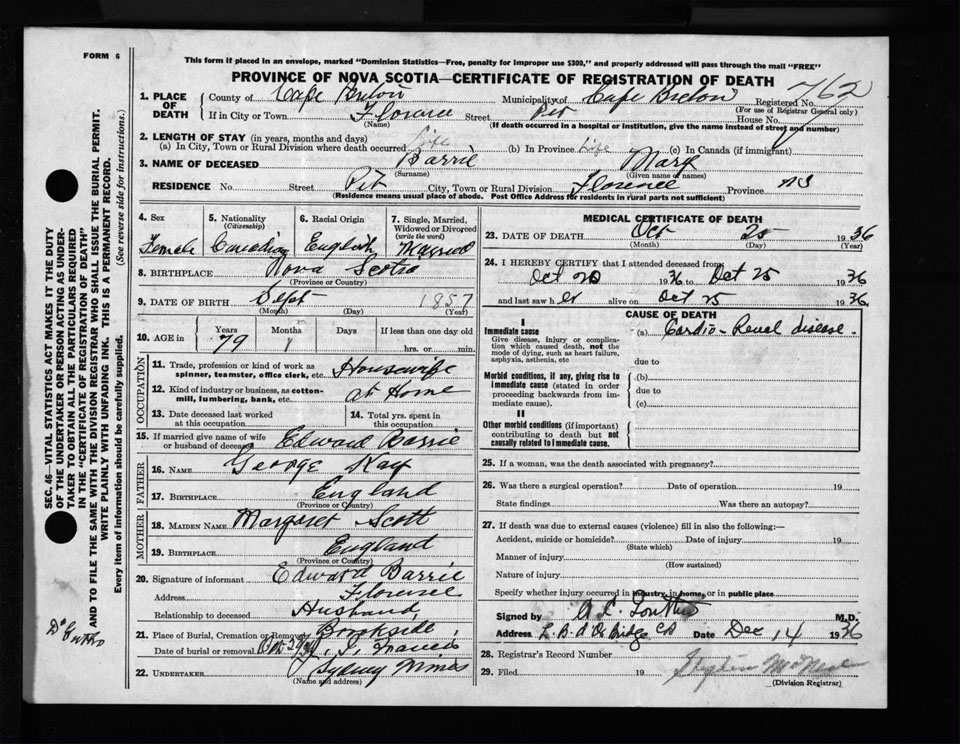 FORM 6
This form if placed in an envelope, marked "Dominion Statistics—Free, penalty for improper use $300," and properly addressed will pass through the mail "FREE"
PROVINCE OF NOVA SCOTIA—CERTIFICATE OF REGISTRATION OF DEATH
762
1. PLACE OF DEATH
County of Cape Breton Municipality of Cape Breton Registered No.
(For use of Registrar General only)
If in City or Town Florence Street Pit House No.
(Name) (If death occurred in a hospital or institution, give the name instead of street and number)
2. LENGTH OF STAY (in years, months and days)
(a) In City, Town or Rural Division where death occurred life (b) In Province life (c) In Canada (if immigrant)
3. NAME OF DECEASED Barrie Mary
(Surname) (Given name or names)
RESIDENCE No. Street Pit City, Town or Rural Division Florence Province NS
(Residence means usual place of abode. Post Office Address for residents in rural parts not sufficient)
4. Sex Female
5. Nationality (Citizenship) Canadian
6. Racial Origin English
7. Single, Married, Widowed or Divorced (write the word) Married
8. BIRTHPLACE Nova Scotia
(Province or Country)
9. DATE OF BIRTH Sept 1857
(Month) (Day) (Year)
10. AGE in Years 79 Months 1 Days If less than one day old hrs. or min.
OCCUPATION
11. Trade, profession or kind of work as spinner, teamster, office clerk, etc. Housewife
12. Kind of industry or business, as cotton-mill, lumbering, bank, etc. at Home
13. Date deceased last worked at this occupation
14. Total yrs. spent in this occupation
15. If married give name of wife or husband of deceased Edward Barrie
FATHER
16. NAME George Kay
17. BIRTHPLACE England
(Province or Country)
MOTHER
18. MAIDEN NAME Margaret Scott
19. BIRTHPLACE England
(Province or Country)
20. Signature of informant Edward Barrie
Address Florence
Relationship to deceased Husband
21. Place of Burial, Cremation or Removal Brookside
Date of burial or removal Oct 27/36
22. UNDERTAKER J. Francis
Sydney Mines
(Name and address)
MEDICAL CERTIFICATE OF DEATH
23. DATE OF DEATH Oct 25 1936
(Month) (Day) (Year)
24. I HEREBY CERTIFY that I attended deceased from
Oct 20 1936 to Oct 25 1936
and last saw her alive on Oct 25 1936
CAUSE OF DEATH
I
Immediate cause
Give disease, injury or complication which caused death, not the mode of dying, such as heart failure, asphyxia, asthenia, etc
(a) Cardio-Renal disease.
due to
Morbid conditions, if any, giving rise to immediate cause (stated in order proceeding backwards from immediate cause).
(b)
due to
(c)
II
Other morbid conditions (if important) contributing to death but not causally related to immediate cause.
25. If a woman, was the death associated with pregnancy?
26. Was there a surgical operation? Date of operation 19
State findings Was there an autopsy?
27. If death was due to external causes (violence) fill in also the following:—
Accident, suicide or homicide? Date of injury 19
(State which)
Manner of injury
(How sustained)
Nature of injury
Specify whether injury occurred in industry, in home, or in public place
Signed by M.D.
Address Bridge CB Date Dec 14 1936
28. Registrar's Record Number
29. Filed 19 Stephen McNeil
(Division Registrar)
SEC. 46—VITAL STATISTICS ACT MAKES IT THE DUTY
OF THE UNDERTAKER OR PERSON ACTING AS UNDER-
TAKER TO OBTAIN ALL THE PARTICULARS REQUIRED
IN THE "CERTIFICATE OF REGISTRATION OF DEATH"
AND TO FILE THE SAME WITH THE DIVISION REGISTRAR WHO SHALL ISSUE THE BURIAL PERMIT.
WRITE PLAINLY WITH UNFADING INK. THIS IS A PERMANENT RECORD.
Every item of information should be carefully supplied. (See reverse side for instructions.)